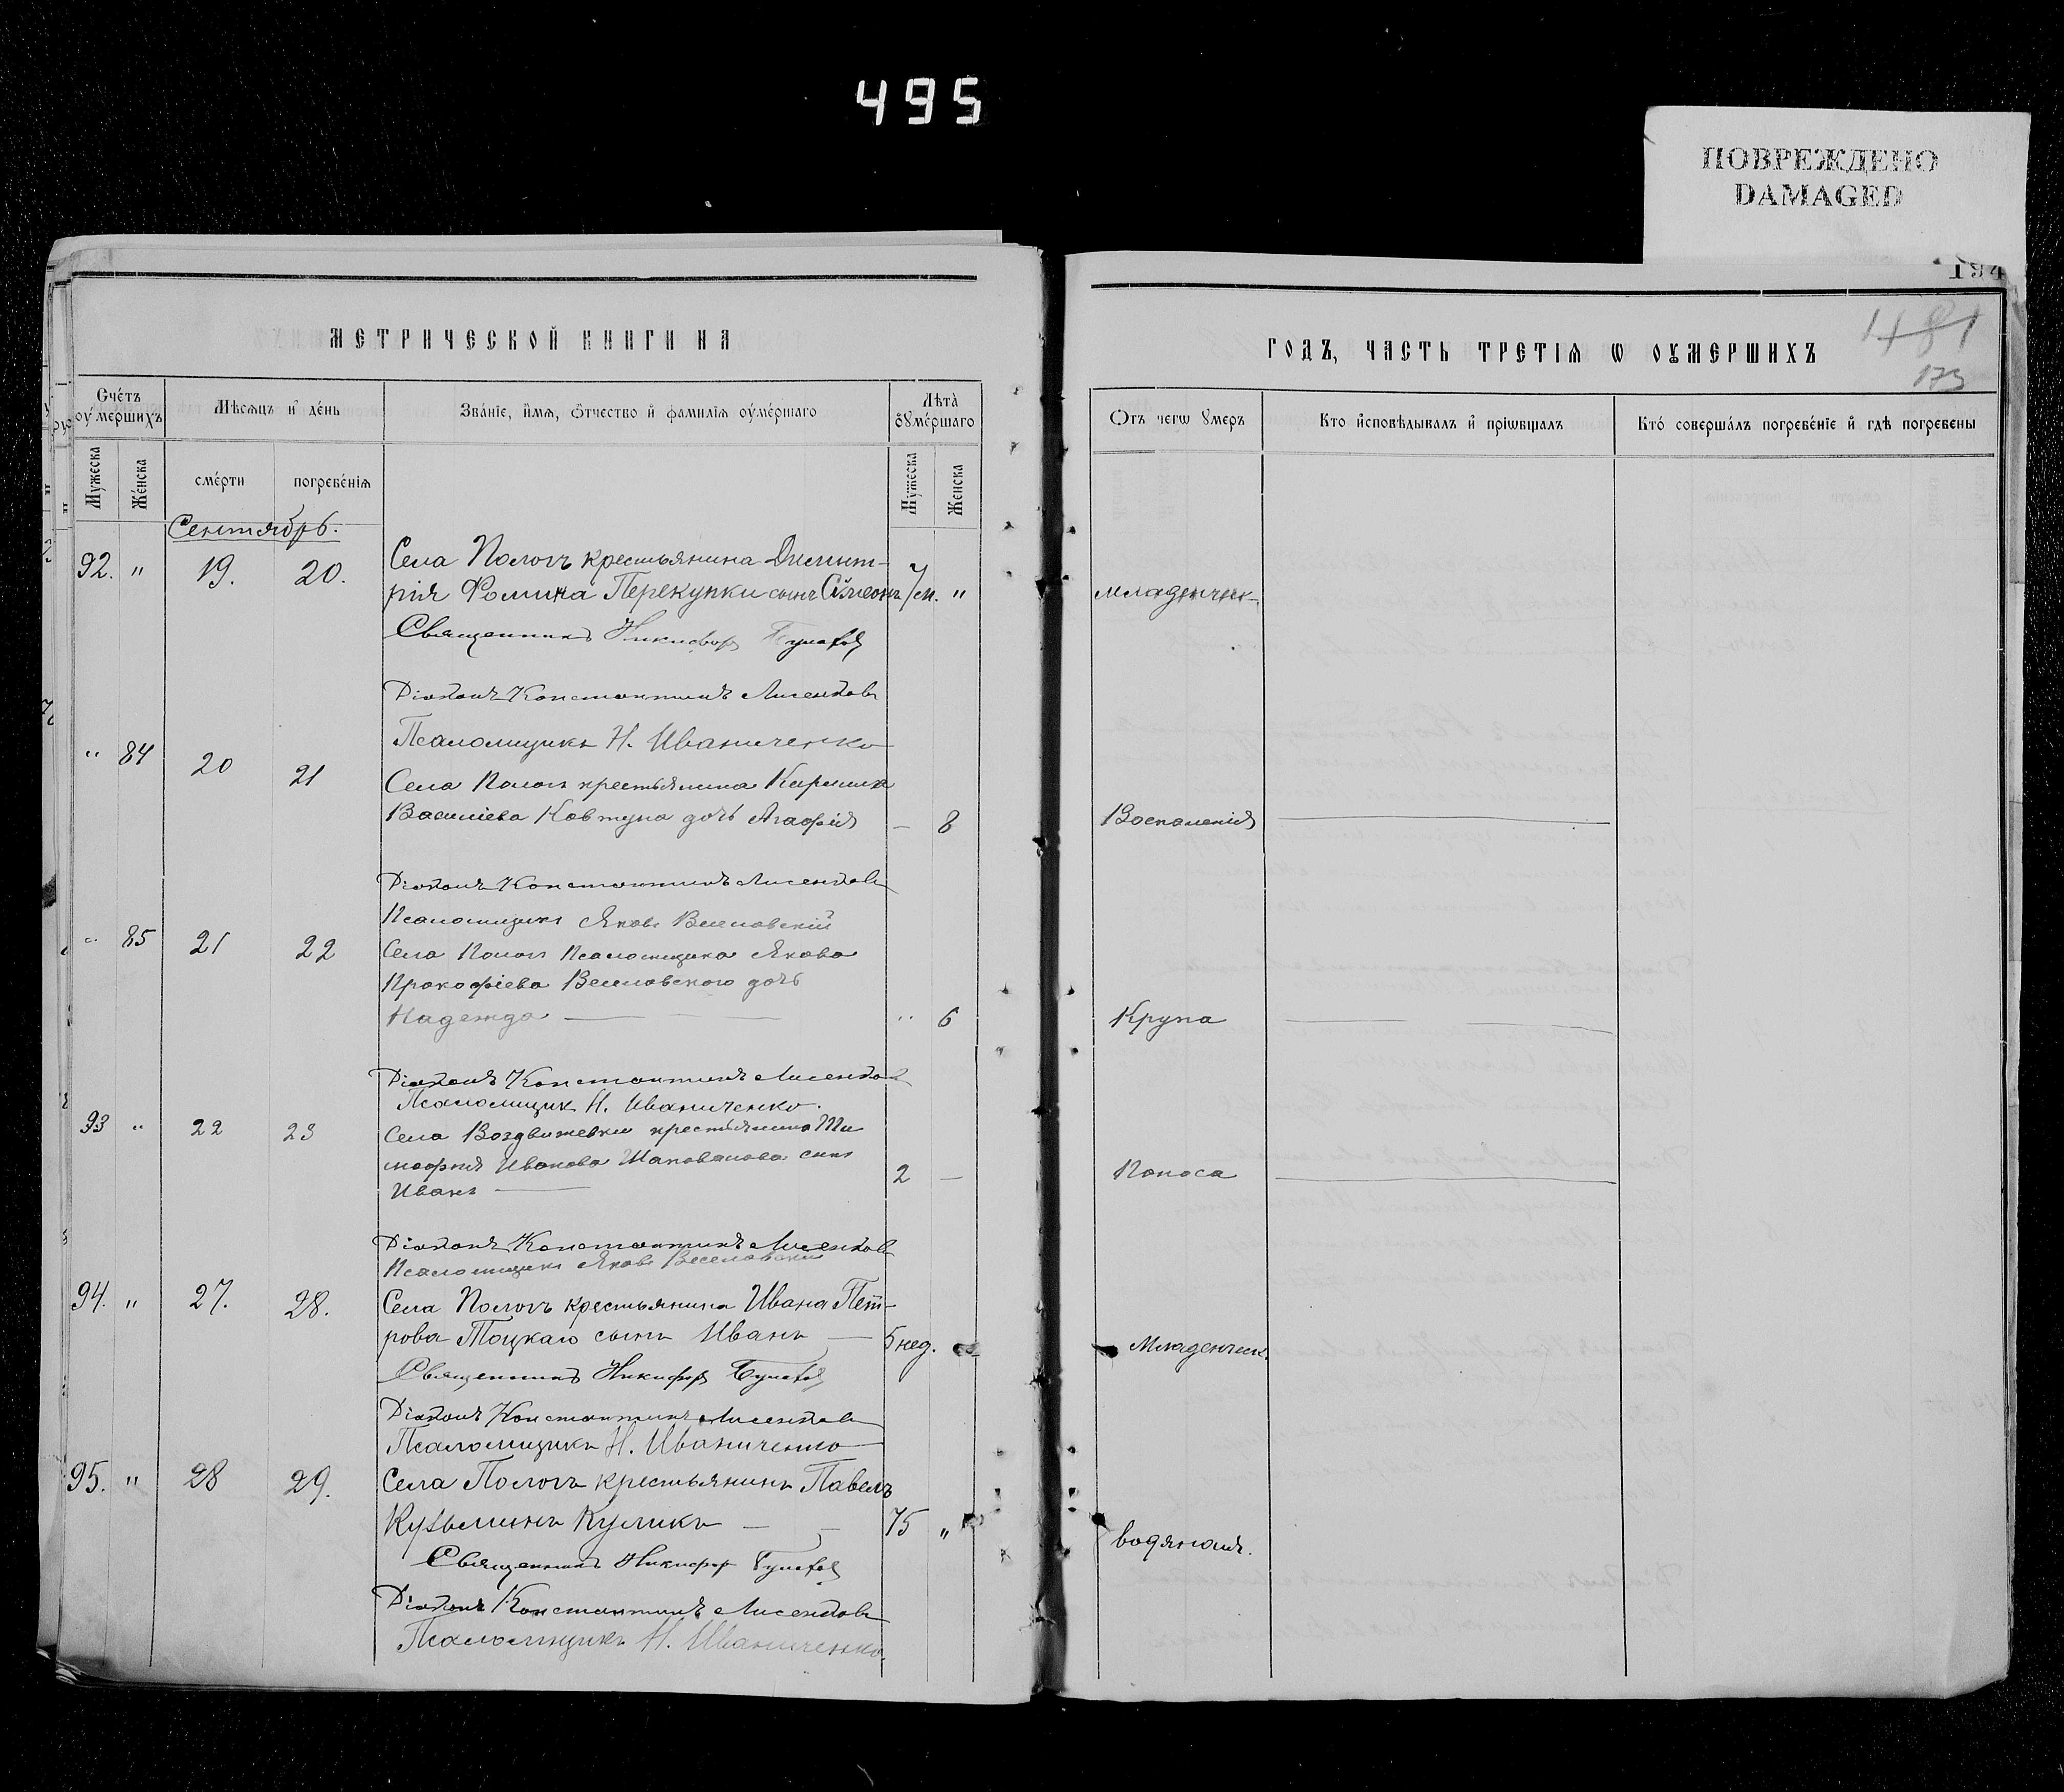 495
ПОВРЕЖДЕНО
DAMAGED
194
МЕТРИЧЕСКОЙ КНИГИ НА
ГОДЪ, ЧАСТЬ ТРЕТІѦ Ѡ ОУМЕРШИХЪ
481
173
Счéтъ оу́мершихъ
Мѣсѧцъ и҆ де́нь
Зва́нїе, и҆́мѧ, ѻ҆́тчество и҆ фамилїѧ оуме́ршагѡ
Лѣта̀ оуме́ршаго
Отъ чегѡ оумеръ
Кто и҆сповѣдывалъ и҆ прїѡбщалъ
Кто́ соверша́лъ погребе́нїе и҆ гдѣ погребены
Мужеска
Женска
сме́рти
погребе́нїѧ
Мужеска
Женска
Сентябрь.
92. " 19. 20. Села Пологъ крестьянина Димит-
рія Ѳомина Перекупки сынъ Сѵмеонъ 7 м. " младенческ.
Священникъ Никифоръ
Діаконъ Константинъ Лисенковъ
Псаломщикъ Н. Иваниченко
" 84 20 21 Села Пологъ крестьянина Кирилла
Василіева Ковтуна дочь Агафія — 8 Воспаленія
Діаконъ Константинъ Лисенковъ
Псаломщикъ Яковъ Веселовскій
" 85 21 22 Села Пологъ Псаломщика Якова
Прокофіева Веселовского дочь
Надежда " 6 Крупа
Діаконъ Константинъ Лисенковъ
Псаломщик Н. Иваниченко.
93 " 22 23 Села Воздвижевки крестьянина Ти
мофея Иванова Шаповалова сынъ
Иванъ 2 — Поноса
Діаконъ Константинъ Лисенковъ
Псаломщикъ Яковъ Веселовскій
94. " 27. 28. Села Пологъ крестьянина Ивана Пет-
рова Тоцкаго сынъ Иванъ — 5 нед. " Младенческ.
Священникъ Никифоръ
Діаконъ Константинъ Лисенковъ
Псаломщикъ Н. Иваниченко
95. " 28 29. Села Пологъ крестьянинъ Павелъ
Кузьминъ Куликъ — 75 " водяная.
Священникъ Никифоръ
Діаконъ Константинъ Лисенковъ
Псаломщикъ Н. Иваниченко.